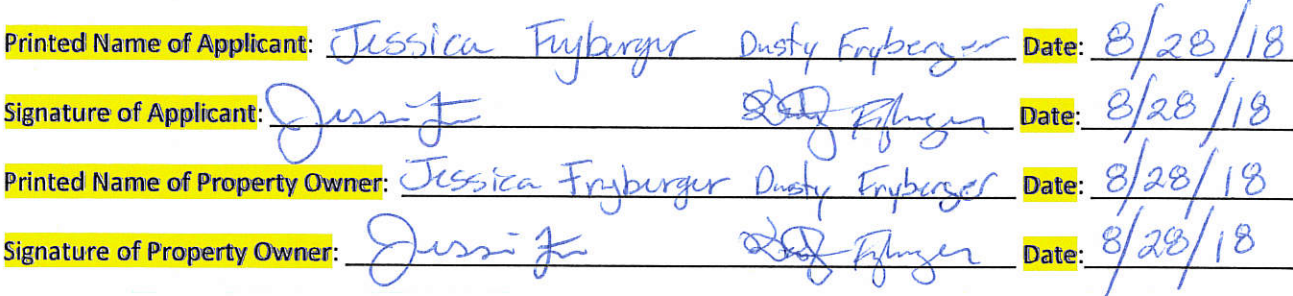 Printed Name of Applicant: Jessica Fryberger Dusty Fryberger Date: 8/28/18
Signature of Applicant: Date: 8/28/18
Printed Name of Property Owner: Jessica Fryberger Dusty Fryberger Date: 8/28/18
Signature of Property Owner: Date: 8/28/18